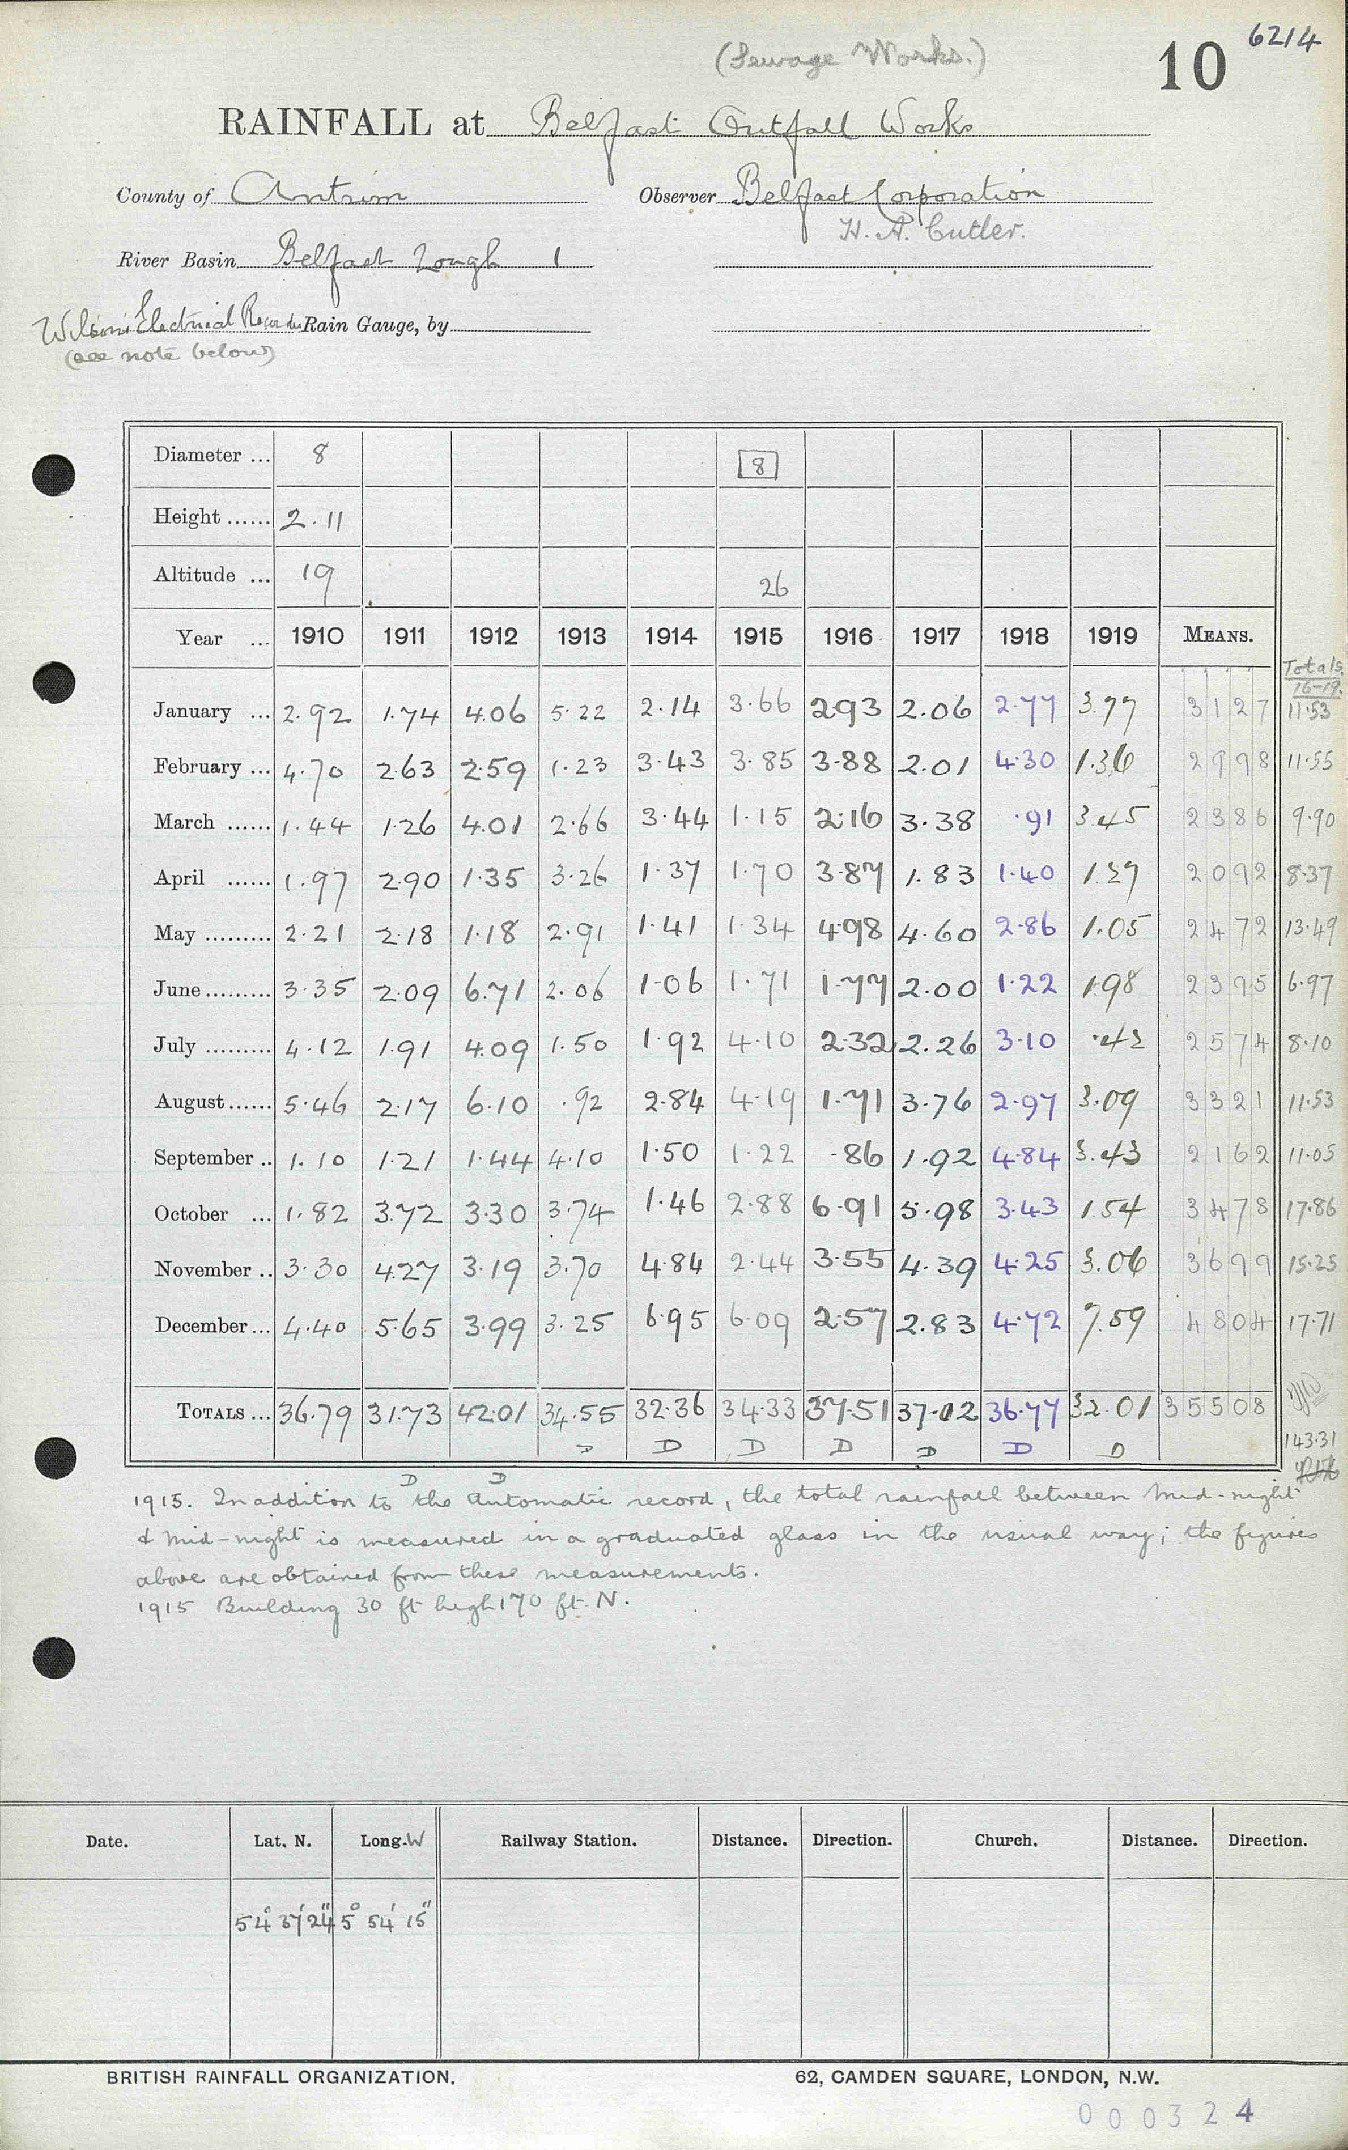 (Sewage Works.)
10
6214
RAINFALL at Belfast Outfall Works
County of Antrim Observer Belfast Corporation
H. A. Cutler.
River Basin Belfast Lough 1
Wilson's Electrical Recorder Rain Gauge, by
(see note below)
Diameter ... 8 8
Height ...... 2.11
Altitude ... 19 26
Year ... 1910 1911 1912 1913 1914 1915 1916 1917 1918 1919 MEANS. Totals 16-19.
January ... 2.92 1.74 4.06 5.22 2.14 3.66 2.93 2.06 2.77 3.77 3 1 2 7 11.53
February ... 4.70 2.63 2.59 1.23 3.43 3.85 3.88 2.01 4.30 1.36 2 9 9 8 11.55
March ...... 1.44 1.26 4.01 2.66 3.44 1.15 2.16 3.38 .91 3.45 2 3 8 6 9.90
April ...... 1.97 2.90 1.35 3.26 1.37 1.70 3.87 1.83 1.40 1.27 2 0 9 2 8.37
May ......... 2.21 2.18 1.18 2.91 1.41 1.34 4.98 4.60 2.86 1.05 2 4 7 2 13.49
June ......... 3.35 2.09 6.71 2.06 1.06 1.71 1.77 2.00 1.22 1.98 2 3 9 5 6.97
July ......... 4.12 1.91 4.09 1.50 1.92 4.10 2.32 2.26 3.10 .42 2 5 7 4 8.10
August ...... 5.46 2.17 6.10 .92 2.84 4.19 1.71 3.76 2.97 3.09 3 3 2 1 11.53
September .. 1.10 1.21 1.44 4.10 1.50 1.22 .86 1.92 4.84 3.43 2 1 6 2 11.05
October ... 1.82 3.72 3.30 3.74 1.46 2.88 6.91 5.98 3.43 1.54 3 4 7 8 17.86
November .. 3.30 4.27 3.19 3.70 4.84 2.44 3.55 4.39 4.25 3.06 3 6 9 9 15.25
December ... 4.40 5.65 3.99 3.25 6.95 6.09 2.57 2.83 4.72 7.59 4 8 0 4 17.71
TOTALS ... 36.79 31.73 42.01 34.55 32.36 34.33 37.51 37.02 36.77 32.01 3 5 5 0 8
D D D D D D D 143.31
D D
1915. In addition to the automatic record, the total rainfall between mid-night
& mid-night is measured in a graduated glass in the usual way; the figures
above are obtained from these measurements.
1915 Building 30 ft high 170 ft. N.
Date. Lat. N. Long. W Railway Station. Distance. Direction. Church. Distance. Direction.
54° 37' 24" 5° 54' 15"
BRITISH RAINFALL ORGANIZATION. 62, CAMDEN SQUARE, LONDON, N.W.
0 0 0 3 2 4